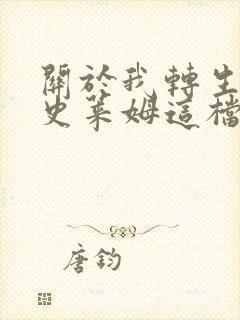 關於我轉生
史萊姆這檔
唐鈞